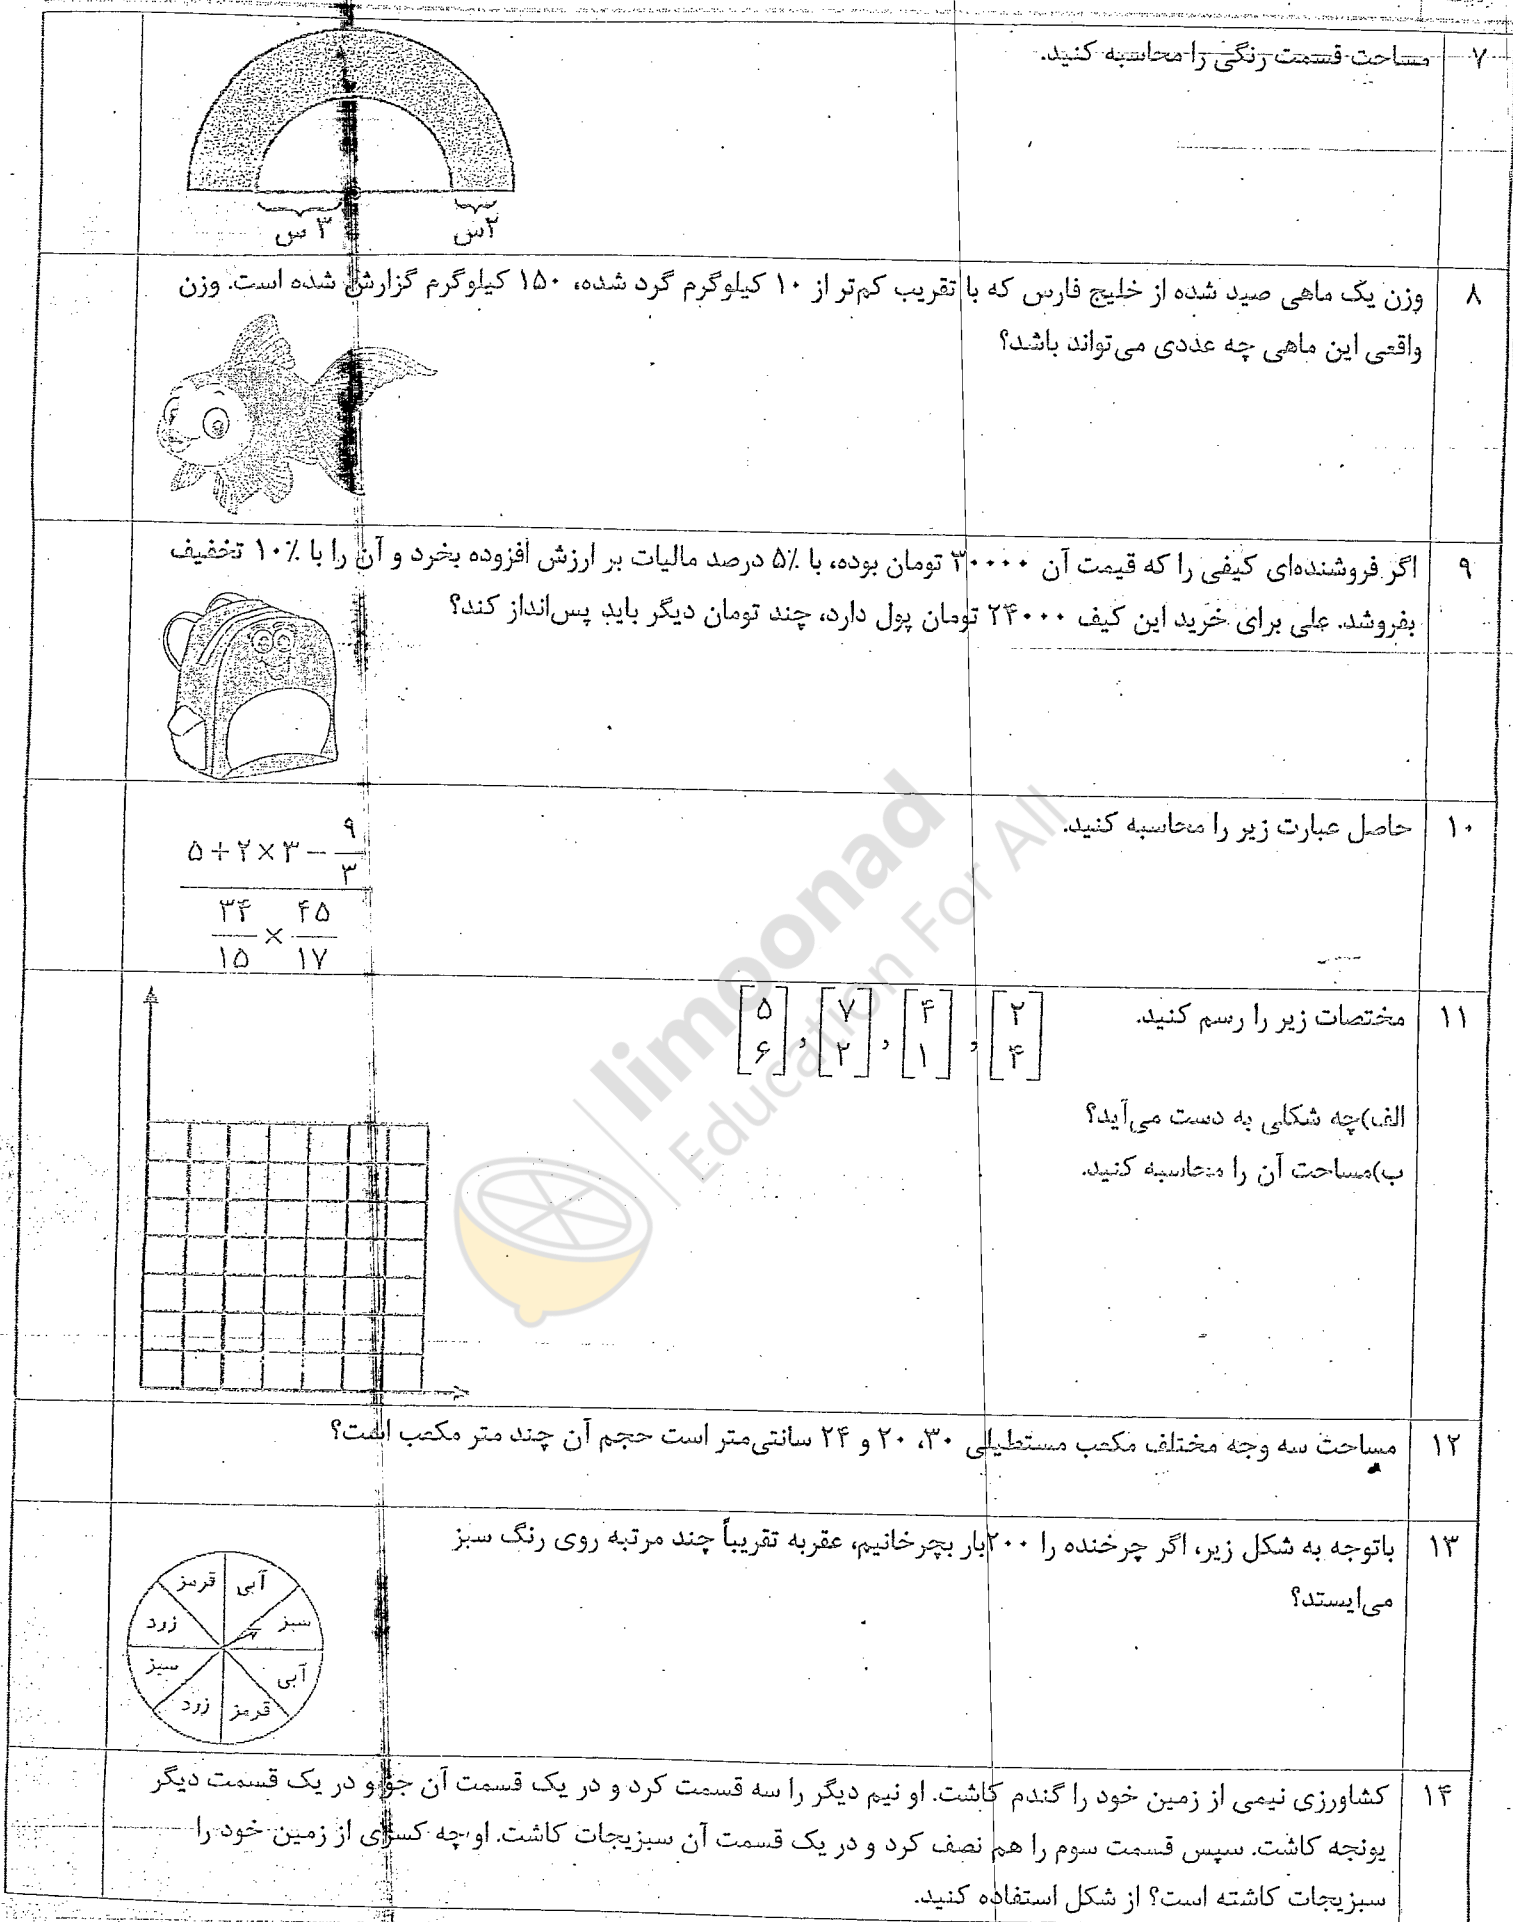 ۷ مساحت قسمت رنگی را محاسبه کنید.
۳ س ۲س
۸ وزن یک ماهی صید شده از خلیج فارس که با تقریب کم‌تر از ۱۰ کیلوگرم گرد شده، ۱۵۰ کیلوگرم گزارش شده است. وزن
واقعی این ماهی چه عددی می‌تواند باشد؟
۹ اگر فروشنده‌ای کیفی را که قیمت آن ۳۰۰۰۰ تومان بوده، با ۵٪ درصد مالیات بر ارزش افزوده بخرد و آن را با ۱۰٪ تخفیف
بفروشد. علی برای خرید این کیف ۲۴۰۰۰ تومان پول دارد، چند تومان دیگر باید پس‌انداز کند؟
۱۰ حاصل عبارت زیر را محاسبه کنید.
۹
۵ + ۲ × ۳ −
۳
۳۴ ۴۵
×
۱۵ ۱۷
۱۱ مختصات زیر را رسم کنید. [۲ ۴] , [۴ ۱] , [۷ ۲] , [۵ ۶]
الف)چه شکلی به دست می‌آید؟
ب)مساحت آن را محاسبه کنید.
limoonad
Education For All
۱۲ مساحت سه وجه مختلف مکعب مستطیلی ۳۰، ۲۰ و ۲۴ سانتی‌متر است حجم آن چند متر مکعب است؟
۱۳ باتوجه به شکل زیر، اگر چرخنده را ۲۰۰بار بچرخانیم، عقربه تقریباً چند مرتبه روی رنگ سبز
می‌ایستد؟
آبی قرمز
سبز زرد
آبی سبز
قرمز زرد
۱۴ کشاورزی نیمی از زمین خود را گندم کاشت. او نیم دیگر را سه قسمت کرد و در یک قسمت آن جو و در یک قسمت دیگر
یونجه کاشت. سپس قسمت سوم را هم نصف کرد و در یک قسمت آن سبزیجات کاشت. او چه کسری از زمین خود را
سبزیجات کاشته است؟ از شکل استفاده کنید.